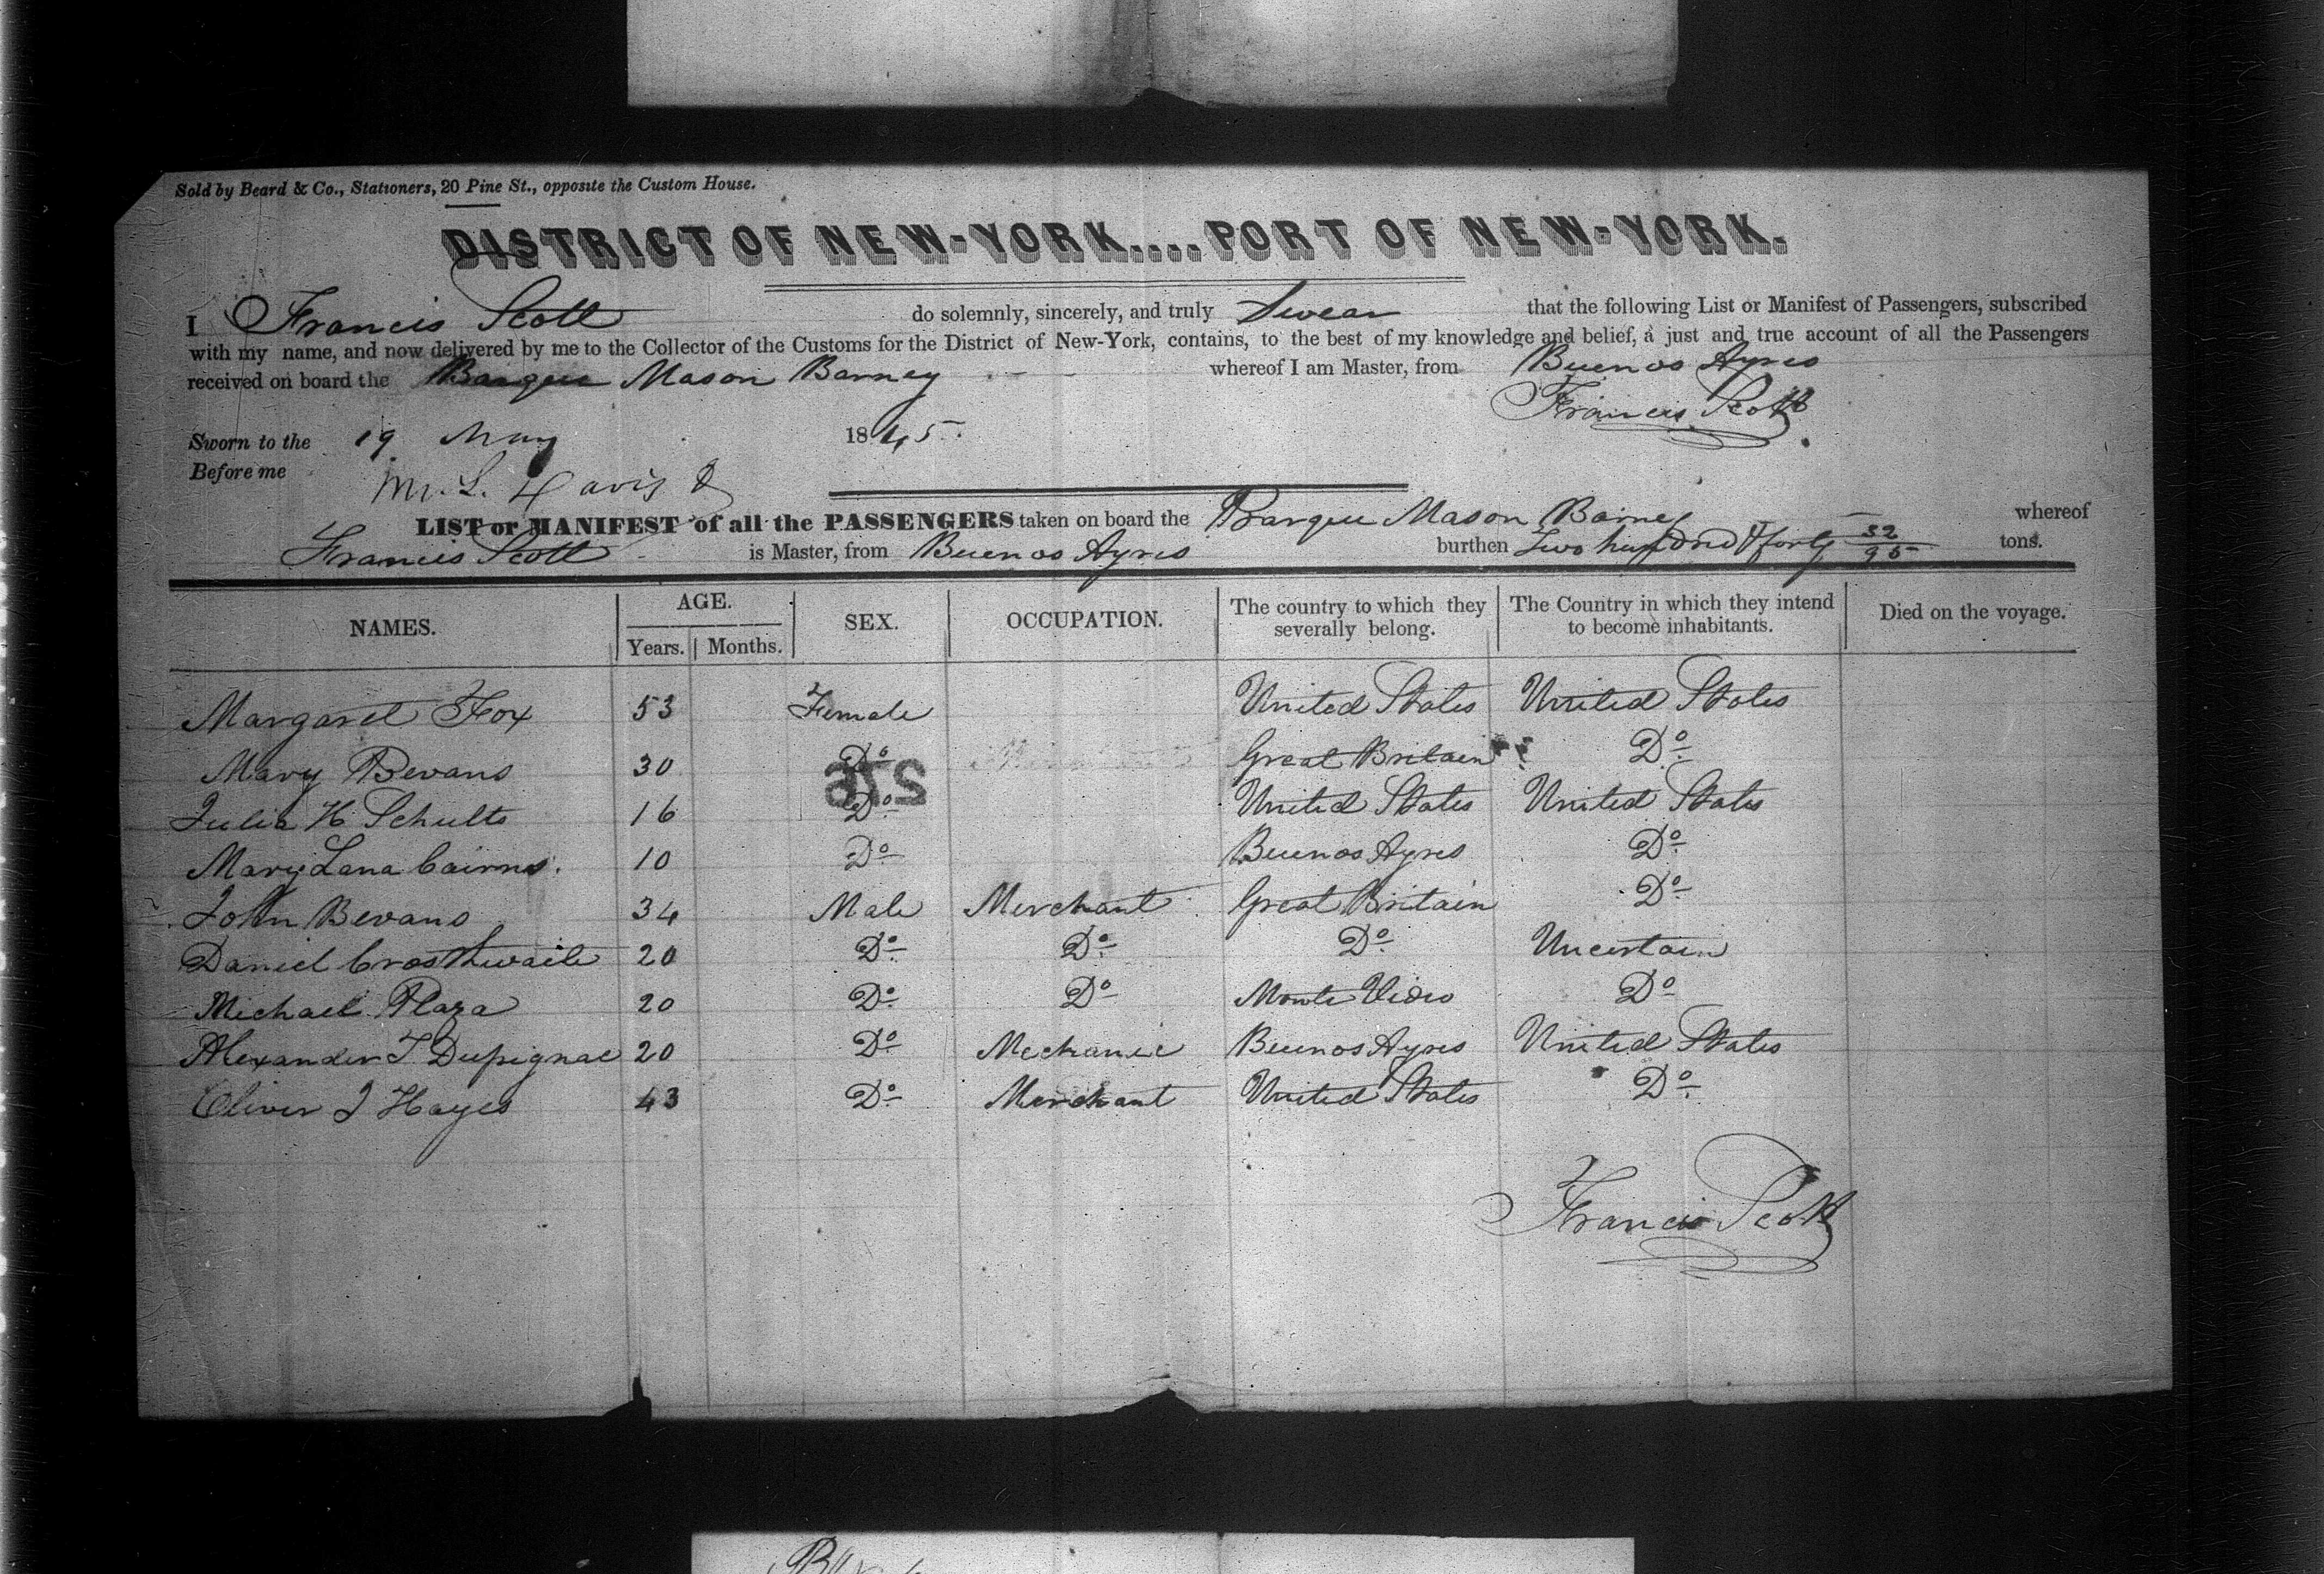 Sold by Beard & Co., Stationers, 20 Pine St., opposite the Custom House.
DISTRICT OF NEW-YORK....PORT OF NEW-YORK.
I Francis Scott do solemnly, sincerely, and truly Swear that the following List or Manifest of Passengers, subscribed
with my name, and now delivered by me to the Collector of the Customs for the District of New-York, contains, to the best of my knowledge and belief, a just and true account of all the Passengers
received on board the Barque Mason Barney whereof I am Master, from Buenos Ayres
Francis Scott
Sworn to the 19 May 1845.
Before me
M. L. Davis
LIST or MANIFEST of all the PASSENGERS taken on board the Barque Mason Barney whereof
Francis Scott is Master, from Buenos Ayres burthen Two hundred & forty 32/95 tons.
NAMES. AGE. Years. Months. SEX. OCCUPATION. The country to which they severally belong. The Country in which they intend to become inhabitants. Died on the voyage.
Margaret Fox 53 Female United States United States
Mary Bevans 30 Do Great Britain Do
Julia H Schults 16 Do United States United States
Mary Lana Cairns. 10 Do Buenos Ayres Do
John Bevans 34 Male Merchant Great Britain Do
Daniel Crosthwaite 20 Do Do Do Uncertain
Michael Plaza 20 Do Do Monte Video Do
Alexander T Dupignac 20 Do Mechanic Buenos Ayres United States
Oliver J Hayes 43 Do Merchant United States Do
Francis Scott